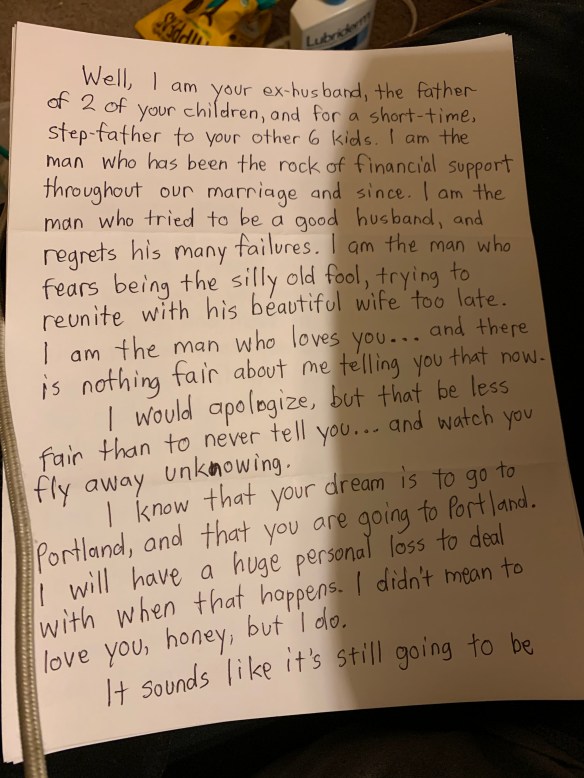 Lubriderm
Well, I am your ex-husband, the father
of 2 of your children, and for a short-time,
step-father to your other 6 kids. I am the
man who has been the rock of financial support
throughout our marriage and since. I am the
man who tried to be a good husband, and
regrets his many failures. I am the man who
fears being the silly old fool, trying to
reunite with his beautiful wife too late.
I am the man who loves you... and there
is nothing fair about me telling you that now.
I would apologize, but that be less
fair than to never tell you... and watch you
fly away unknowing.
I know that your dream is to go to
Portland, and that you are going to Portland.
I will have a huge personal loss to deal
with when that happens. I didn't mean to
love you, honey, but I do.
It sounds like it's still going to be